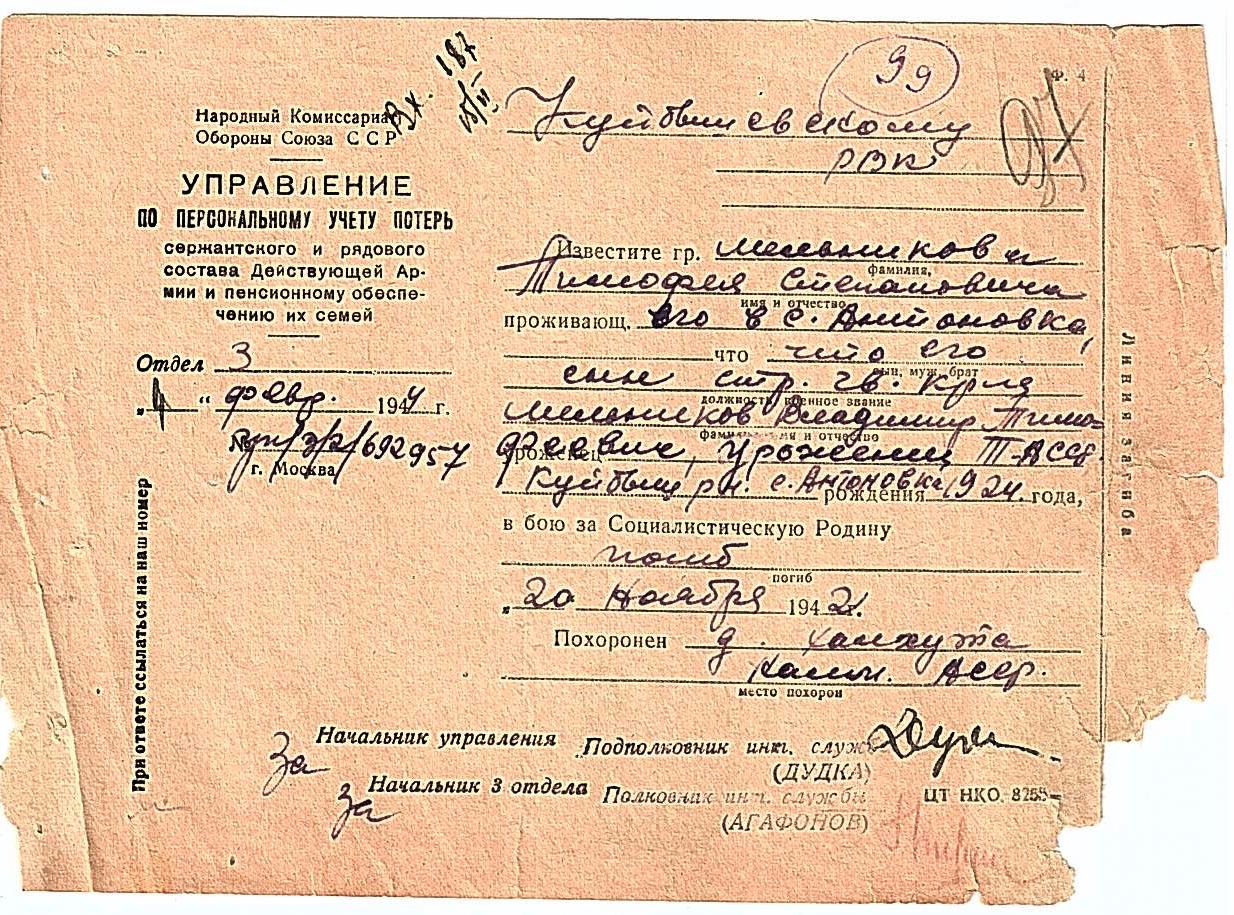 Вх. 187
99
Ф. 4
Народный Комиссариат
Обороны Союза ССР
УПРАВЛЕНИЕ
ПО ПЕРСОНАЛЬНОМУ УЧЕТУ ПОТЕРЬ
сержантского и рядового
состава Действующей Ар-
мии и пенсионному обеспе-
чению их семей
Отдел 3
„4“ февр. 1944 г.
692957
г. Москва
При ответе ссылаться на наш номер
Куйбышевскому
РВК
Известите гр. Мельникова
фамилия,
Тимофея Степановича
имя и отчество
проживающ. его в с. Антоновка,
что что его
сын, муж, брат
сын стр. гв. кр-ца
должность, военное звание
Мельников Владимир Тимо-
фамилия, имя и отчество
уроженец феевич, урожениц Т-АССР
Куйбыш р-н. с. Антоновка рождения 1924 года,
в бою за Социалистическую Родину
погиб
погиб
„20 ноября 1942 г.
Похоронен д. Халхута
Калм. АССР.
место похорон
Линия загиба
За Начальник управления Подполковник инт. служ
(ДУДКА)
За Начальник 3 отдела Полковник инт. службы
(АГАФОНОВ)
ЦТ НКО. 8255-